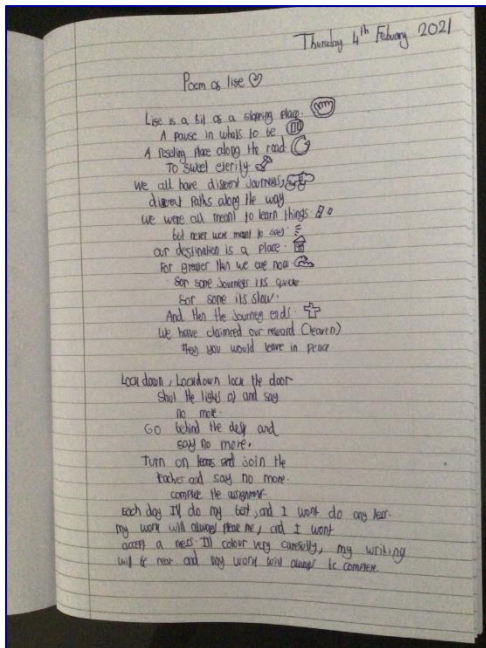 Thursday 4th Febuary 2021
Poem of life
Life is a bit of a stopping place.
A pause in whats to be
A Reseting place along the road
To sweet eterity
we all have diserent Journeys,
diserent Paths along the way
we were all meant to learn things.
but never were meant to
our destination is a place.
For greater then we are now
For some Journeys its quick
for some its slow.
And then the Journey ends.
We have claimed our reward (heaven)
you would leave in peace
Lock down, Lockdown lock the door
Shut the lights of and say
no more.
Go behind the desk and
say no more.
Turn on teams and join the
teacher and say no more.
complete the assignment.
Each day I'll do my best, and I wont do any less.
my work will always please me, and I wont
accept a mess. I'll colour very carefully, my writing
will be neat and my work will always be